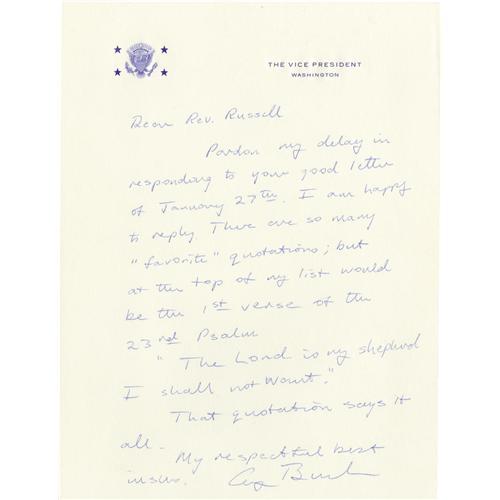 THE VICE PRESIDENT
WASHINGTON
Dear Rev. Russell
Pardon my delay in
responding to your good letter
of January 27th. I am happy
to reply. There are so many
"favorite" quotations; but
at the top of my list would
be the 1st verse of the
23rd Psalm
"The Lord is my shepherd
I shall not want."
That quotation says it
all. My respectful best
wishes. Bush